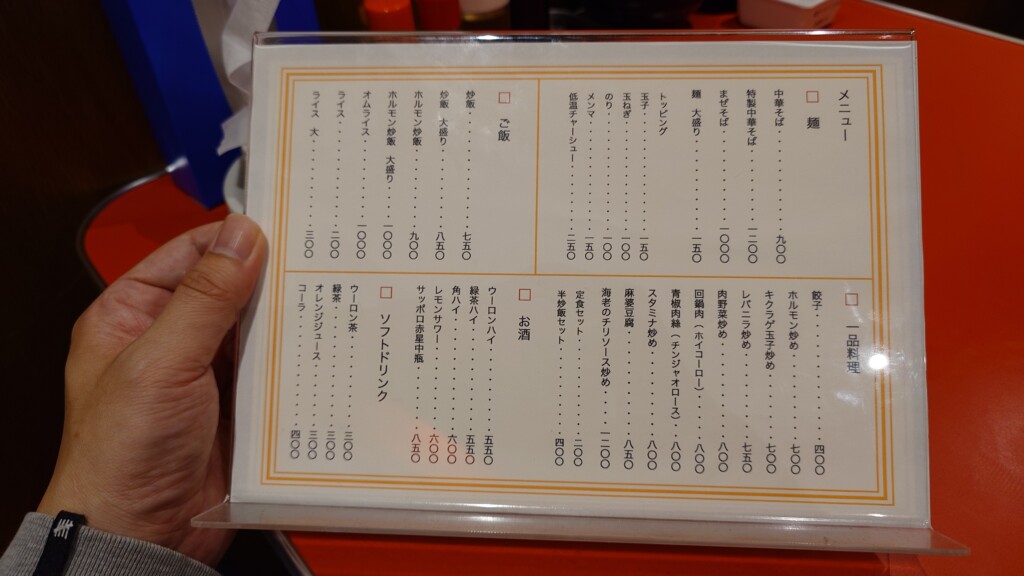 メニュー
□ 麺
中華そば・・・・・・・・・・九〇〇
特製中華そば・・・・・・・一二〇〇
まぜそば・・・・・・・・・一〇〇〇
麺 大盛り・・・・・・・・・一五〇
トッピング
玉子・・・・・・・・・・・・一五〇
玉ねぎ・・・・・・・・・・・一〇〇
のり・・・・・・・・・・・・一〇〇
メンマ・・・・・・・・・・・一五〇
低温チャーシュー・・・・・・二五〇
□ ご飯
炒飯・・・・・・・・・・・・七五〇
炒飯 大盛り・・・・・・・・八五〇
ホルモン炒飯・・・・・・・・九〇〇
ホルモン炒飯 大盛り・・・一〇〇〇
オムライス・・・・・・・・一〇〇〇
ライス・・・・・・・・・・・二〇〇
ライス 大・・・・・・・・・三〇〇
□ 一品料理
餃子・・・・・・・・・・・・四〇〇
ホルモン炒め・・・・・・・・七〇〇
キクラゲ玉子炒め・・・・・・七〇〇
レバニラ炒め・・・・・・・・七五〇
肉野菜炒め・・・・・・・・・八〇〇
回鍋肉(ホイコーロー)・・・・八〇〇
青椒肉絲(チンジャオロース)・八〇〇
スタミナ炒め・・・・・・・・八〇〇
麻婆豆腐・・・・・・・・・・八五〇
海老のチリソース炒め・・・一二〇〇
定食セット・・・・・・・・・二〇〇
半炒飯セット・・・・・・・・四〇〇
□ お酒
ウーロンハイ・・・・・・・・五五〇
緑茶ハイ・・・・・・・・・・五五〇
角ハイ・・・・・・・・・・・六〇〇
レモンサワー・・・・・・・・六〇〇
サッポロ赤星中瓶・・・・・・八五〇
□ ソフトドリンク
ウーロン茶・・・・・・・・・三〇〇
緑茶・・・・・・・・・・・・三〇〇
オレンジジュース・・・・・・三〇〇
コーラ・・・・・・・・・・・四〇〇